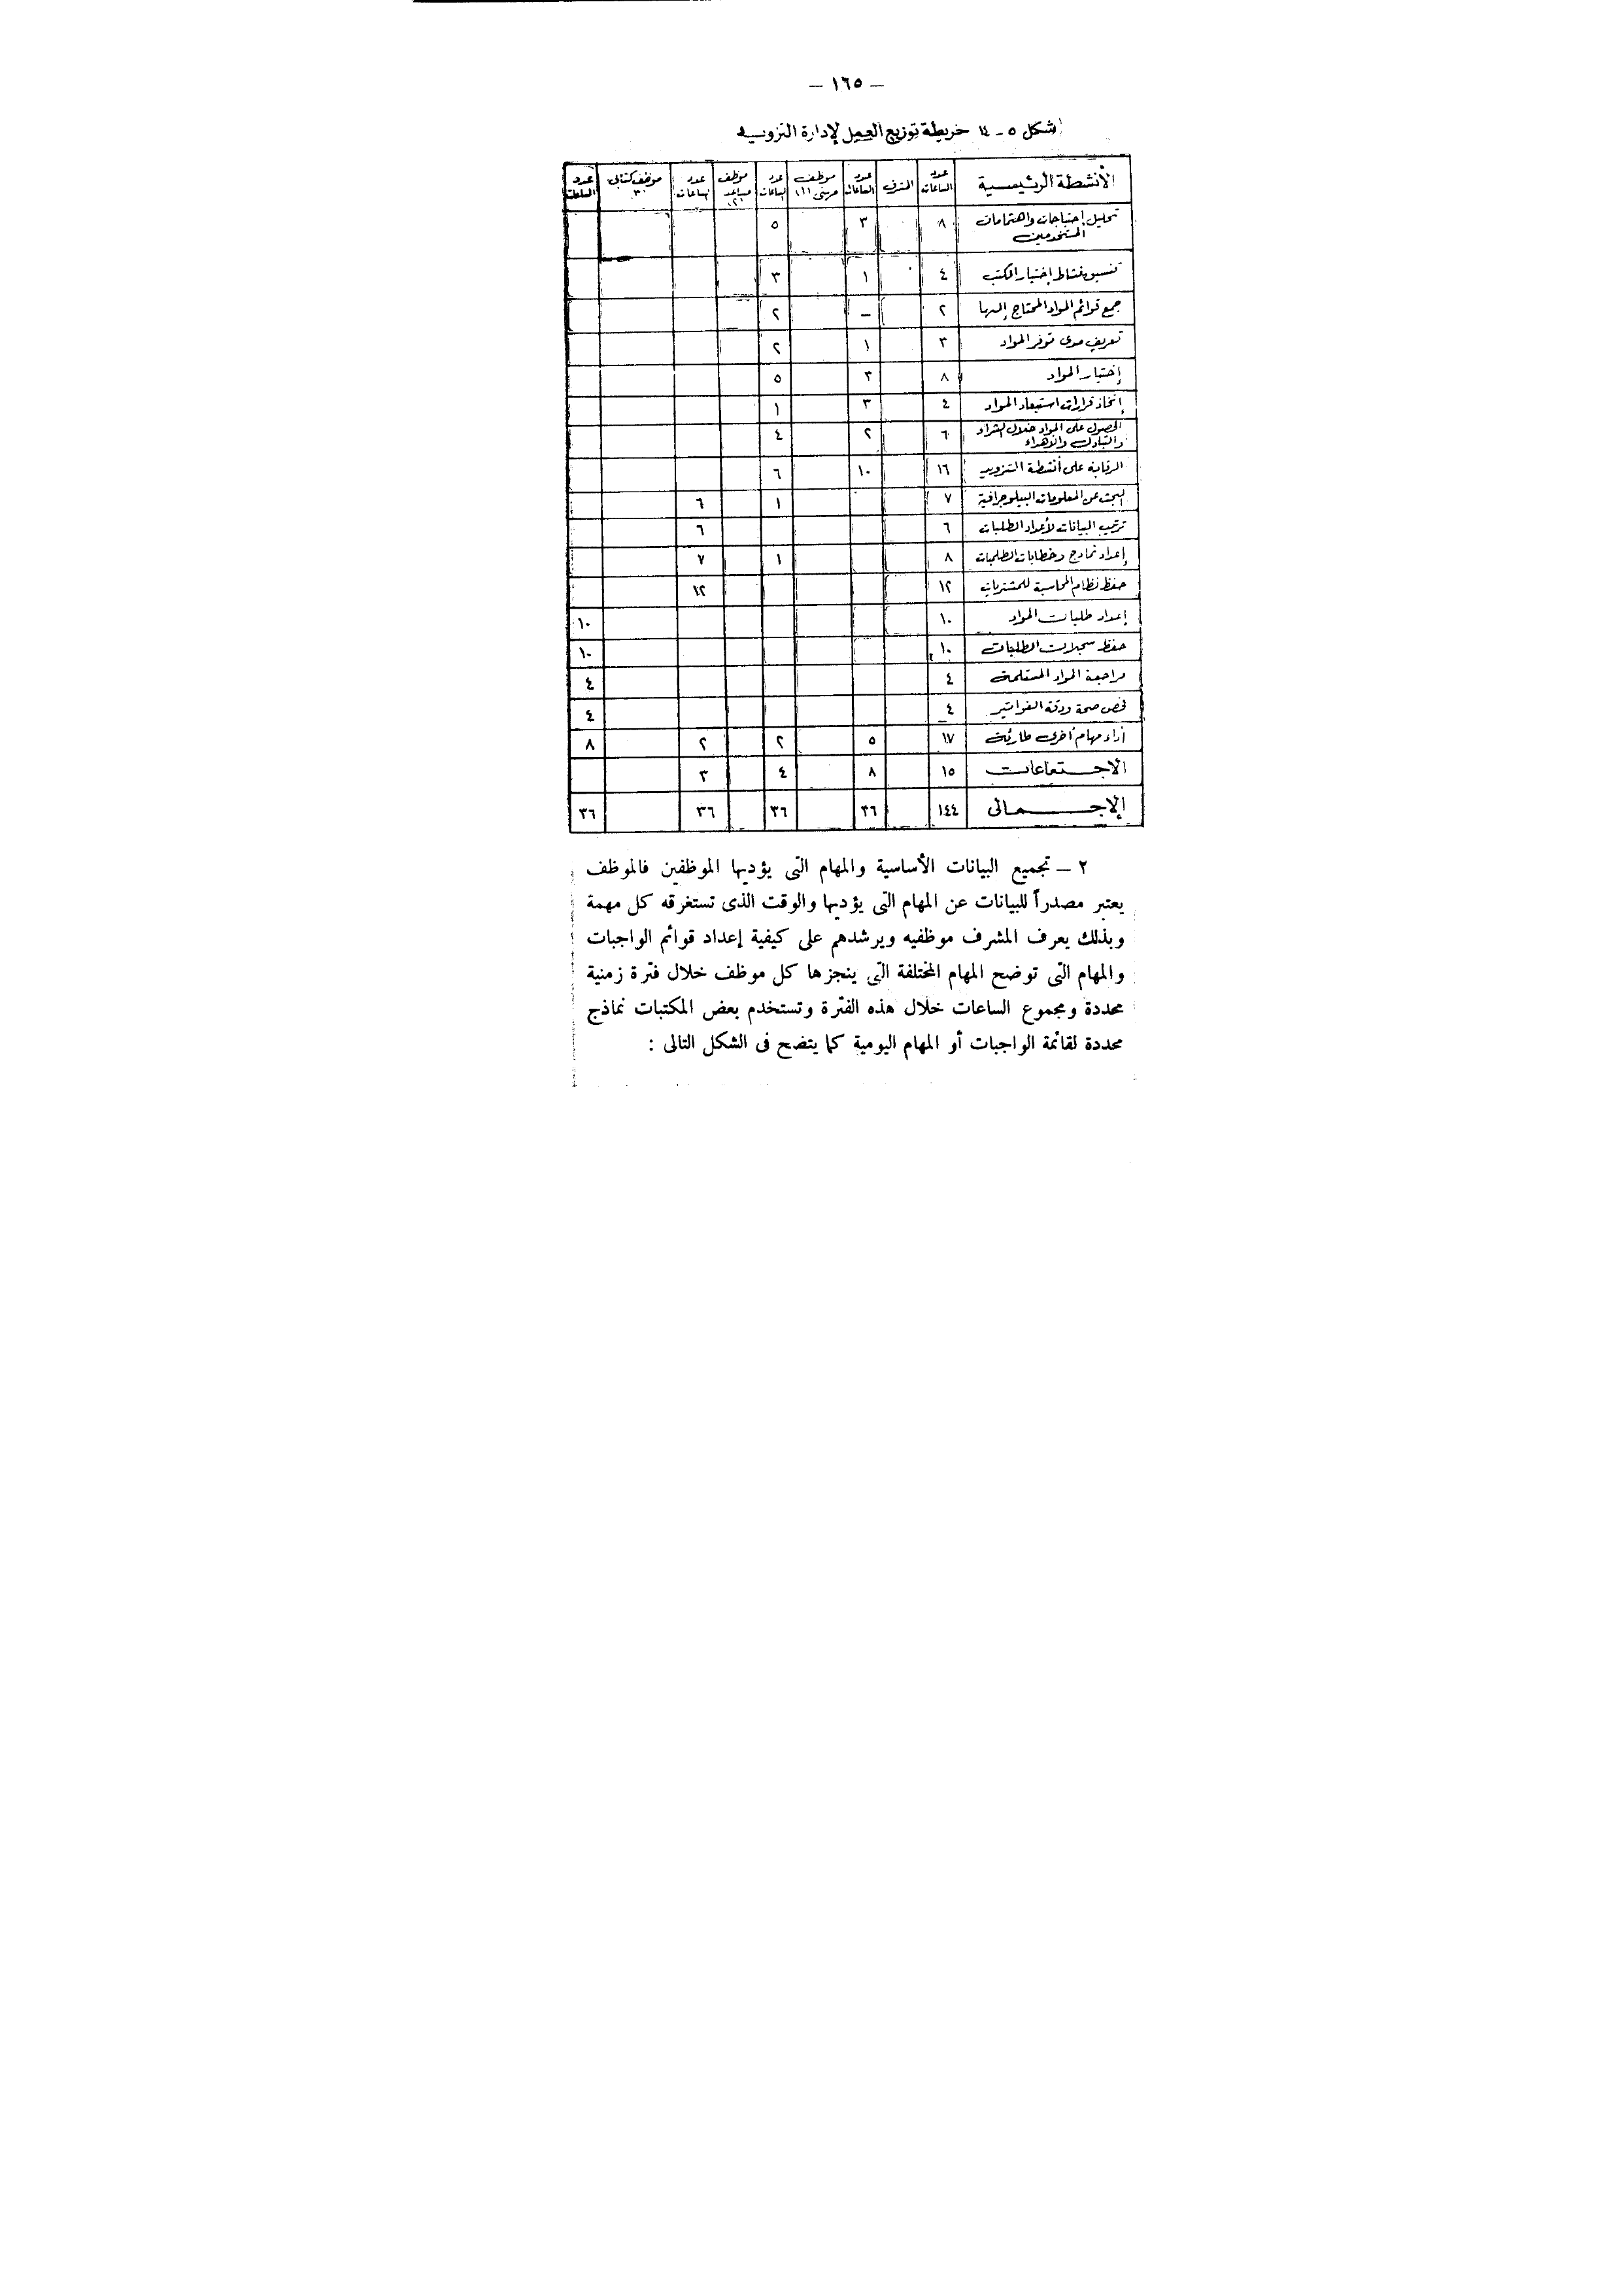 — ١٦٥ —
شكل ٥ - ١٤ خريطة توزيع العمل لإدارة التزويد
الأنشطة الرئيسية عدد الساعات المشرف عدد الساعات موظف مهنى (١) عدد الساعات موظف مساعد (٢) عدد الساعات موظف كتابى ٣ عدد الساعات
تحليل إحتياجات واهتمامات المستخدمين ٨ ٣ ٥
تنسيق نشاط إختيار الكتب ٤ ١ ٣
جمع قوائم المواد المحتاج إليها ٢ — ٢
تعريف مدى توفر المواد ٣ ١ ٢
إختيار المواد ٨ ٣ ٥
إتخاذ قرارات استبعاد المواد ٤ ٣ ١
الحصول على المواد خلال الشراء والتبادل والاهداء ٦ ٢ ٤
الرقابة على أنشطة التزويد ١٦ ١٠ ٦
البحث عن المعلومات الببليوجرافية ٧ ١ ٦
ترتيب البيانات لأعداد الطلبات ٦ ٦
إعداد نماذج وخطابات الطلبات ٨ ١ ٧
حفظ نظام المحاسبة للمشتريات ١٢ ١٢
إعداد طلبات المواد ١٠ ١٠
حفظ سجلات الطلبات ١٠ ١٠
مراجعة المواد المستلمة ٤ ٤
فحص صحة ودقة الفواتير ٤ ٤
أداء مهام أخرى طارئة ١٧ ٥ ٢ ٢ ٨
الاجتماعات ١٥ ٨ ٤ ٣
الإجمالى ١٤٤ ٣٦ ٣٦ ٣٦ ٣٦
٢ — تجميع البيانات الأساسية والمهام التى يؤديها الموظفين فالموظف
يعتبر مصدراً للبيانات عن المهام التى يؤديها والوقت الذى تستغرقه كل مهمة
وبذلك يعرف المشرف موظفيه ويرشدهم على كيفية إعداد قوائم الواجبات
والمهام التى توضح المهام المختلفة التى ينجزها كل موظف خلال فترة زمنية
محددة ومجموع الساعات خلال هذه الفترة وتستخدم بعض المكتبات نماذج
محددة لقائمة الواجبات أو المهام اليومية كما يتضح فى الشكل التالى :